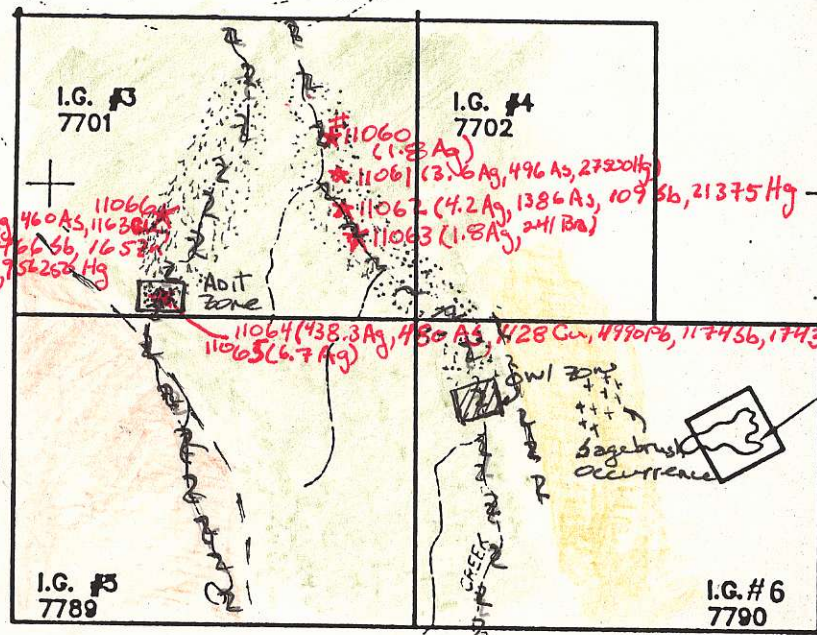 I.G. #3
7701
I.G. #4
7702
11060
(1.8 Ag)
11061 (3.6 Ag, 496 As, 27500 Hg)
11062 (4.2 Ag, 1386 As, 109 Sb, 21375 Hg
11063 (1.8 Ag, 241 Ba)
11066
460 As, 1163
466 Sb, 165
956250 Hg
ADIT
Zone
11064 (438.3 Ag, 450 As, 1128 Cu, 4990 Pb, 1174 Sb, 1743
11065 (6.7 Ag)
OWL Zone
Sagebrush
occurrence
CREEK
I.G. #5
7789
I.G. #6
7790